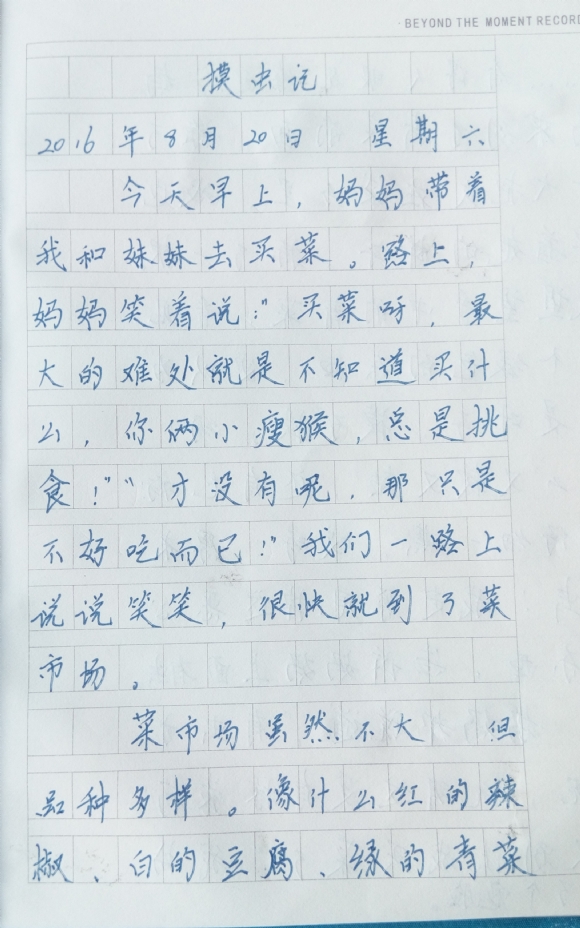 ·BEYOND THE MOMENT RECORD
摸虫记
2016年8月20日 星期六
今天早上，妈妈带着
我和妹妹去买菜。路上，
妈妈笑着说："买菜呀，最
大的难处就是不知道买什
么，你俩小瘦猴，总是挑
食！""才没有呢，那只是
不好吃而已！"我们一路上
说说笑笑，很快就到了菜
市场。
菜市场虽然不大 但
品种多样。像什么红的辣
椒、白的豆腐、绿的青菜